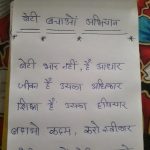 बेटी बचाओं अभियान
बेटी भार नहीं, है आधार
जीवन है उसका अधिकार
शिक्षा है उसका हथियार
बढ़ाओ कदम, करो स्वीकार